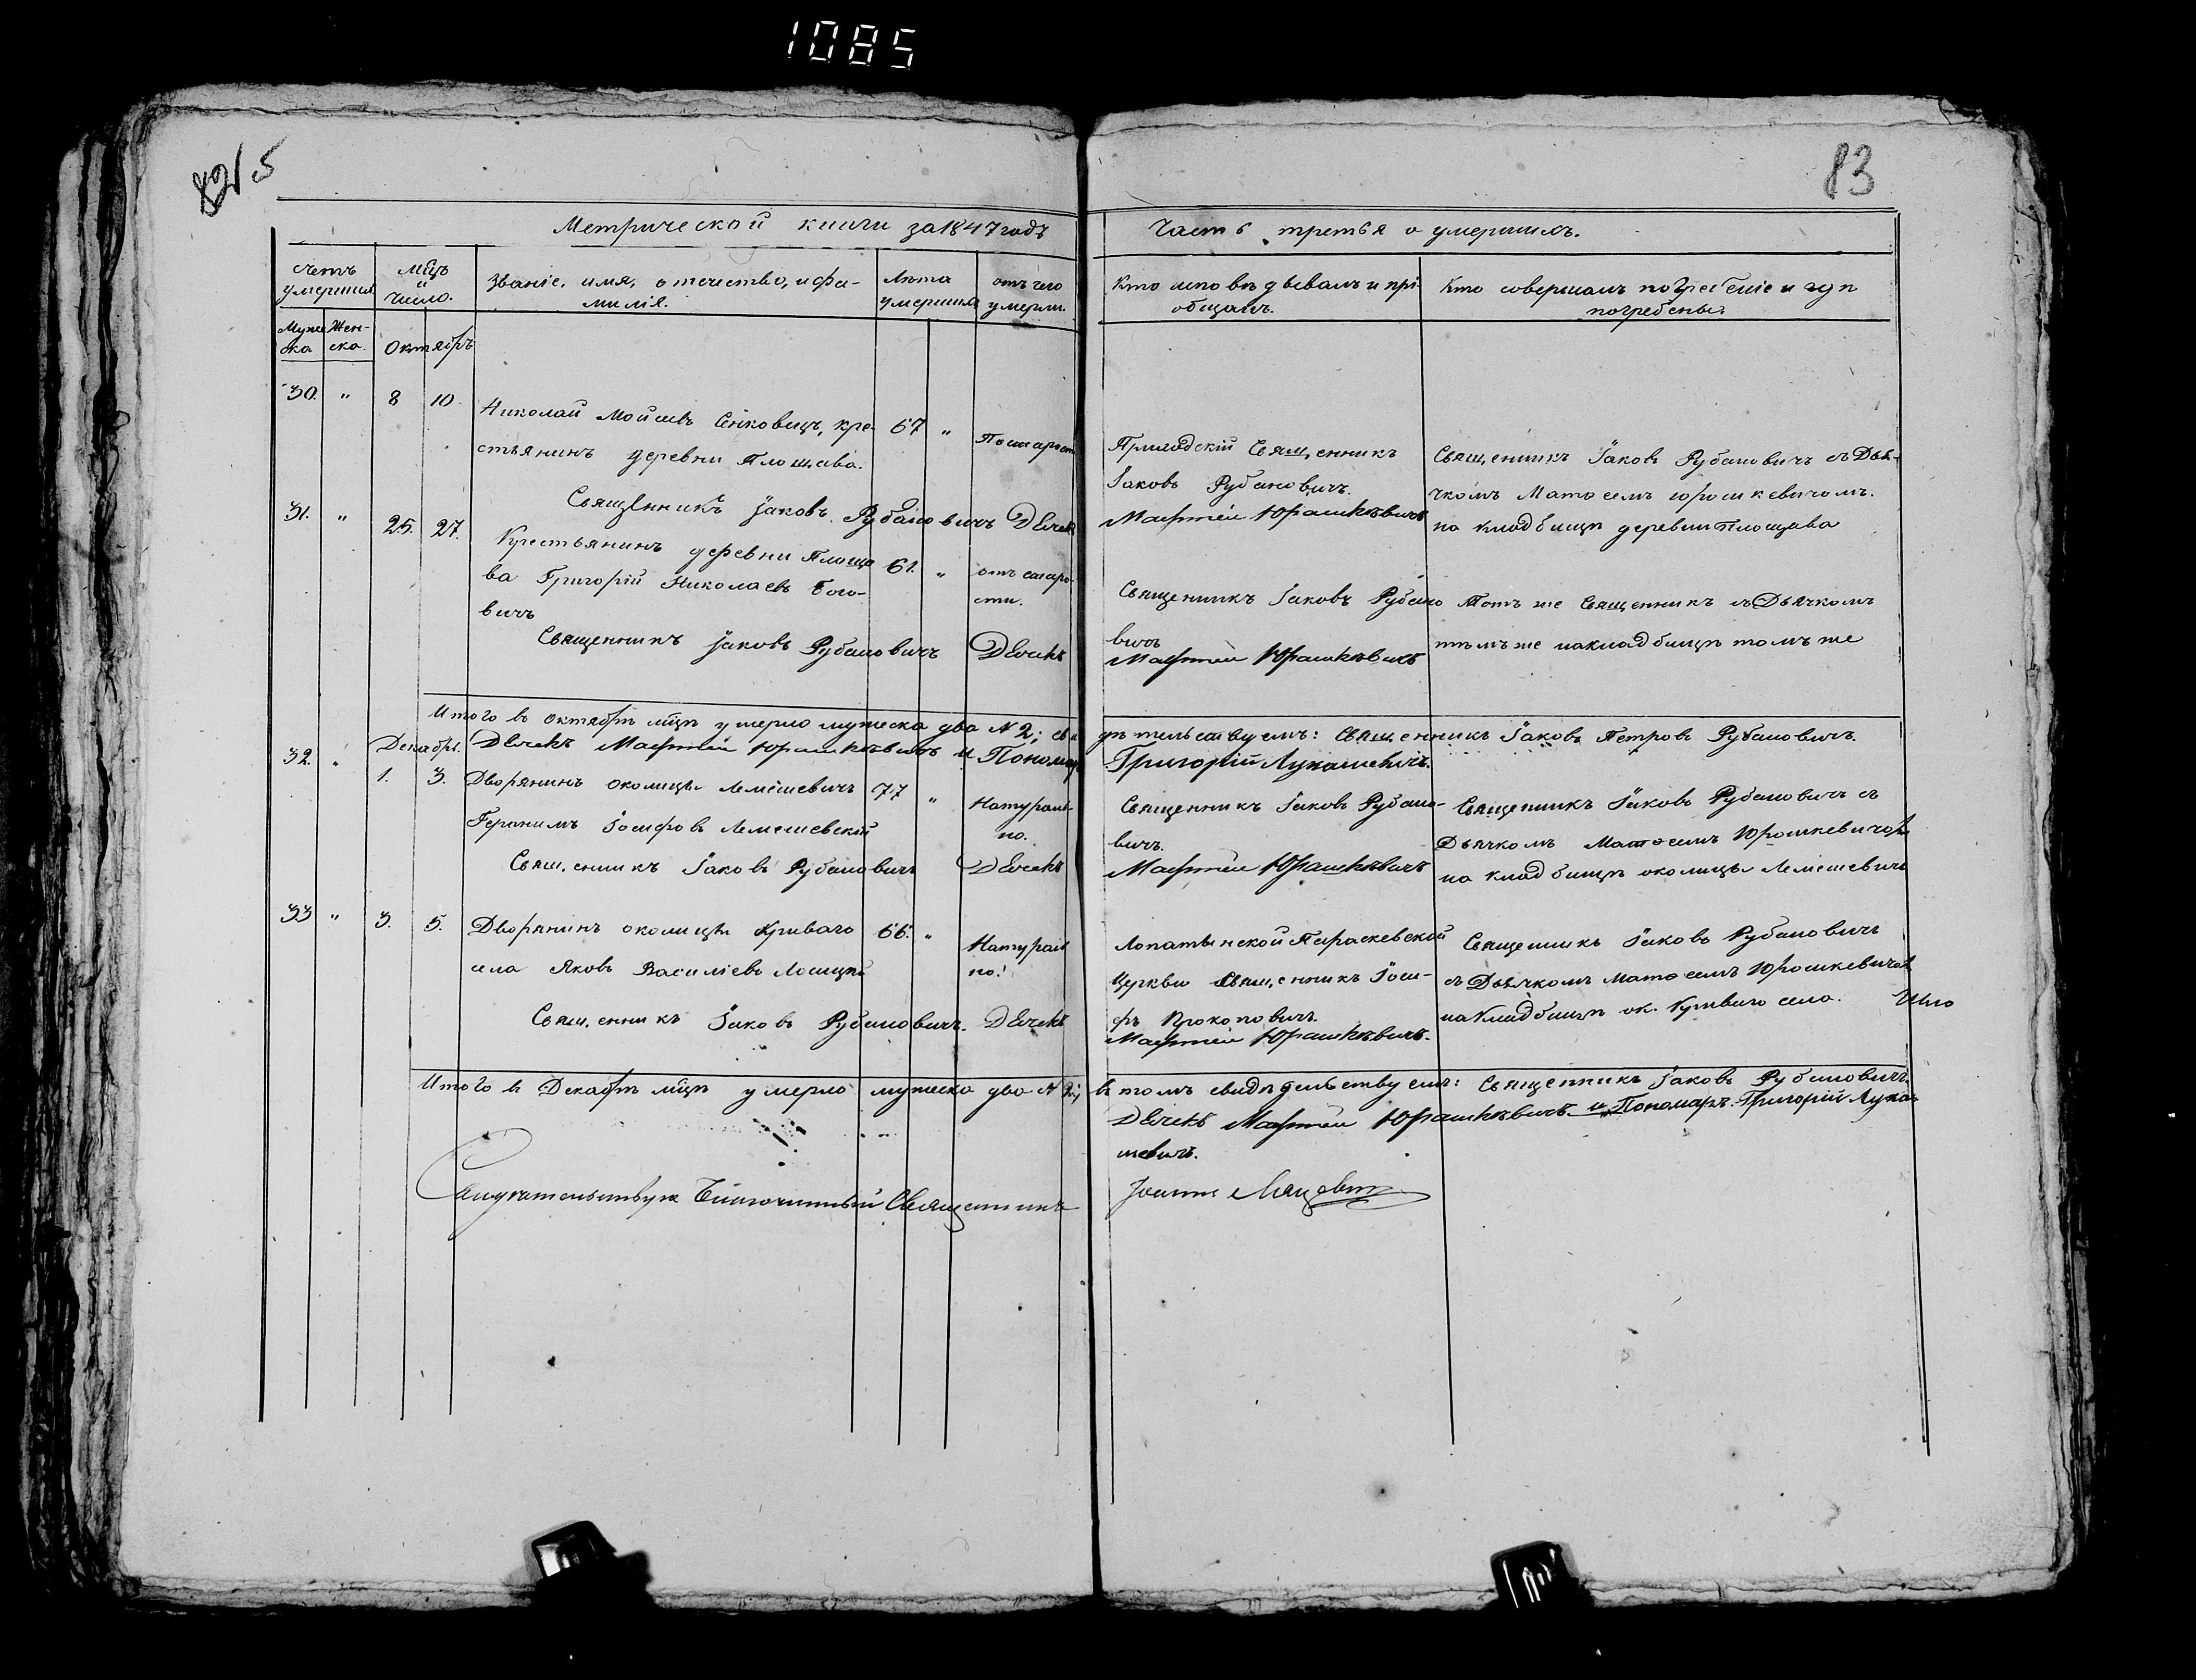 1085
83
Метрической книги за 1847 годъ
Часть третья о умершихъ.
Счетъ умершихъ
Мцъ и число.
Званіе, имя, отечество, и фа-
милія.
Лѣта умершихъ
отъ чего умерли.
Кто исповѣдывалъ и прі-
общалъ.
Кто совершалъ погребеніе и гдѣ
погребены.
Муже
ска
Жен-
ска.
Октябръ
30. " 8 10
Николай Мойсеевъ Сенковецъ, кре-
стьянинъ деревни Площава.
67 "
Постарости
Священникъ Іаковъ Рубановичъ Дѣячекъ
Приходскій Священникъ
Іаковъ Рубановичъ.
Матѳей Юрашкѣвичъ
Священникъ Іаковъ Рубановичъ съ Дья-
чкомъ Матѳеемъ Юрошкевичомъ.
на кладбищѣ деревни Площава
31. " 25. 27.
Крестьянинъ деревни Площа
ва Григорій Николаевъ Бого-
вичъ
61. "
отъ старо-
сти.
Священникъ Іаковъ Рубановичъ Дѣячекъ
Священникъ Іаковъ Рубано
вичъ
Матѳей Юрашкѣвичъ
Тотъ же Священникъ съ Дьячкомъ
тѣмъ же на кладбищѣ томъ же
Итого въ Октябрѣ мцѣ умерло мужеска два № 2; сви
дѣтельствуемъ: Священникъ Іаковъ Петровъ Рубановичъ.
Дѣячекъ Матѳей Юрашкѣвичъ и Пономар
Григорій Лукашевичъ.
Декабрь.
32. " 1. 3.
Дворянинъ околицы Лемешевичъ
Геронимъ Іосифовъ Лемешевскій
77 "
Натураль-
но.
Священникъ Іаковъ Рубановичъ Дѣячекъ
Священникъ Іаковъ Рубано-
вичъ.
Матѳей Юрашкѣвичъ
Священникъ Іаковъ Рубановичъ съ
Дьячкомъ Матѳеемъ Юрошкевичом
на кладбищѣ околицы Лемешевичъ
33 " 3. 5.
Дворянинъ околицы Криваго
села Яковъ Василіевъ Лосицкій
66. "
Натураль
но.
Священникъ Іаковъ Рубановичъ. Дѣячекъ
Лопатынской Параскевской
Церкви Священникъ Іоси-
фъ Прокоповичъ.
Матѳей Юрашкѣвичъ.
Священникъ Іаковъ Рубановичъ
съ Дьячкомъ Матѳеемъ Юрошкевичом
на кладбищѣ ок. Криваго села.
Итого въ Декабрѣ мцѣ умерло мужеска два № 2;
въ томъ свидѣтельствуемъ: Священникъ Іаковъ Рубановичъ.
Дѣячекъ Матѳей Юрашкѣвичъ и Пономаръ. Григорій Лука-
шевичъ.
Священникъ